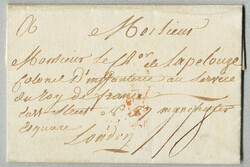 A Monsieur
Monsieur le Ch.er de Lapelouze
Colonel d'infanterie au service
du Roy de france
Manchester
Square
London